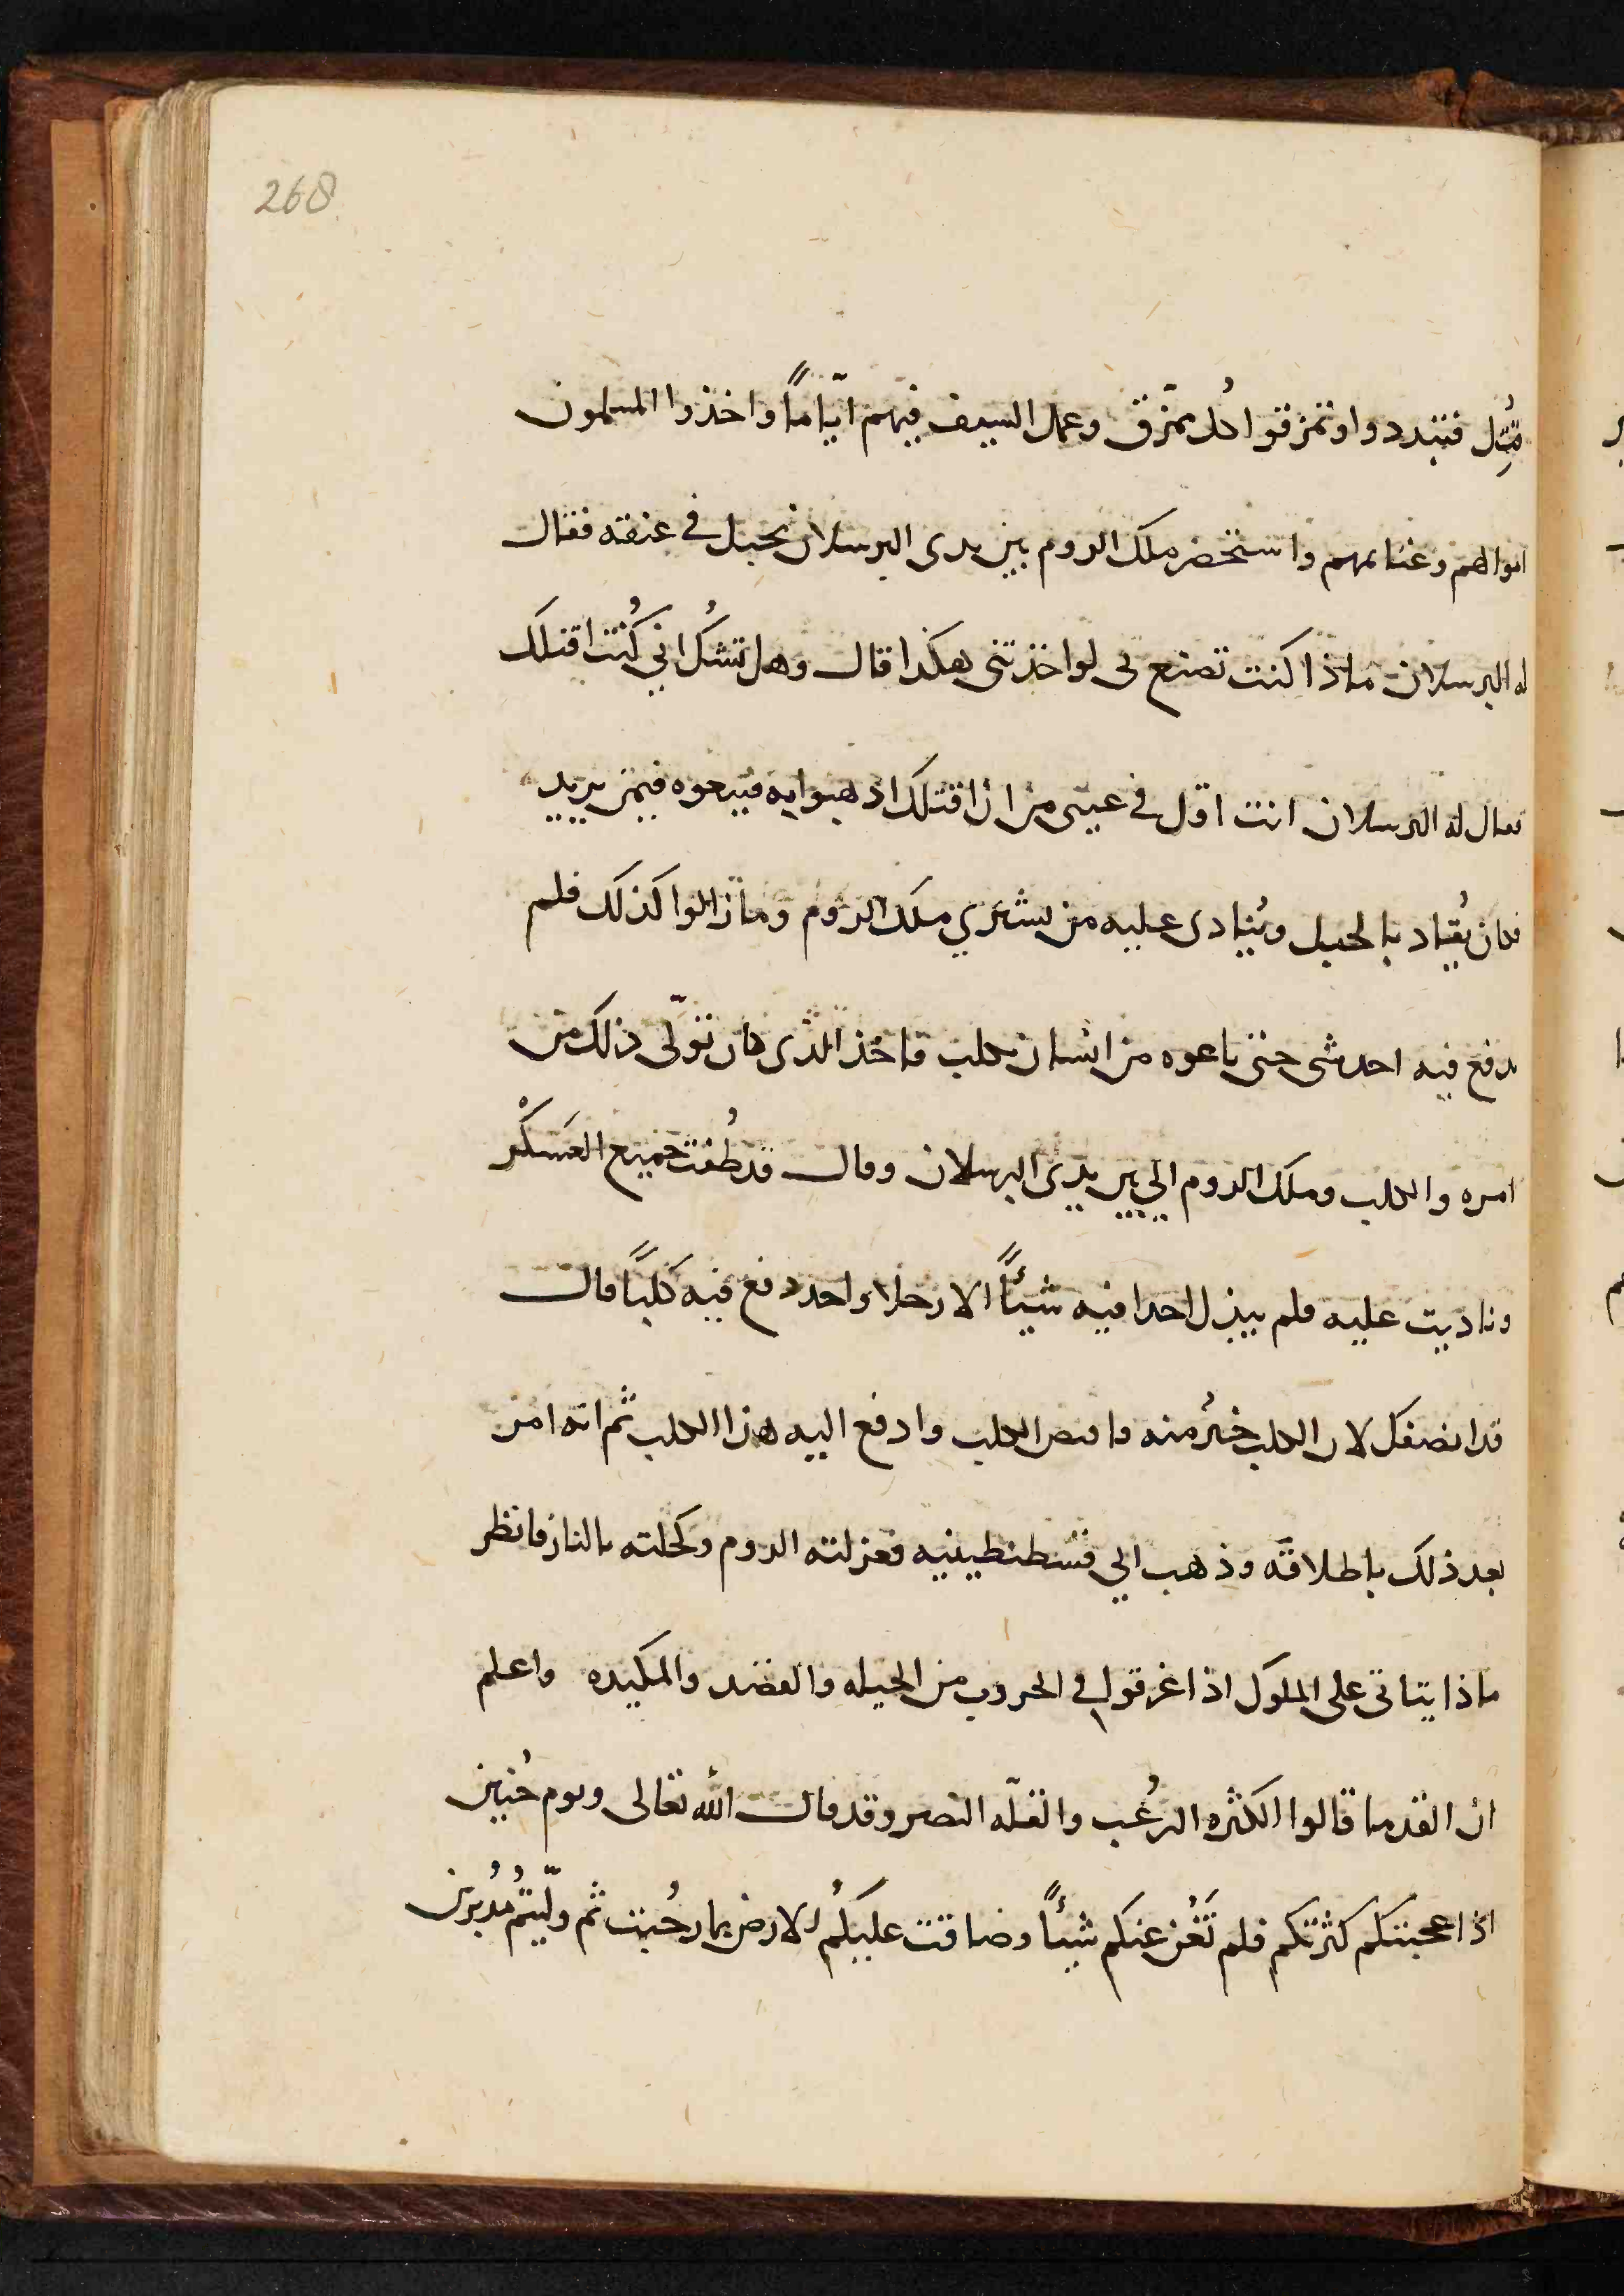 268
قُتِل فتبددوا وتمزقوا كُل ممزّق وعمل السيف فيهم ايّاماً واخذوا المسلمون
اموالهم وغنايمهم واستحضر ملك الروم بين يدى البرسلان بحبل في عنقه فقال
له البرسلان ماذا كنت تصنع بى لو اخذتنى هكذا قال وهل تشُك اني كُنت اقتلك
فقال له البرسلان انت اقل في عينى من ان اقتلك اذهبوا به فبيعوه فيمن يريد
فكان يُقاد بالحبل ويُنادى عليه من يشتري ملك الروم وما زالوا كذلك فلم
يدفع فيه احد شى حتى باعوه من انسان بكلب فاخذ الذى كان تولّى ذلك من
امره والكلب وملك الروم الي بين يدي البرسلان وقال قد طُفت جميع العَسكْر
وناديت عليه فلم يبذل احدا فيه شيئاً الا رجلا واحد دفع فيه كلبًا قال
قد انصفك لان الكلب خيرُ منه فاقبض الكلب وادفع اليه هذا الكلب ثم انه امر
بعد ذلك باطلاقه وذهب الي قسطنطينيه فعزلته الروم وكحلته بالنار فانظر
ماذا يتاتى على الملوك اذا غرقوا في الحروب من الحيله والقصد والمكيده واعلم
ان القدما قالوا الكثره الرُعب والقلّه النصر وقد قال الله تعالى ويوم حُنين
اذ اعجبتكم كثرتكم فلم تَغُن عنكم شيئاً وضاقت عليكُم الارض بما رحُبت ثم ولّيتُم مُدبرين